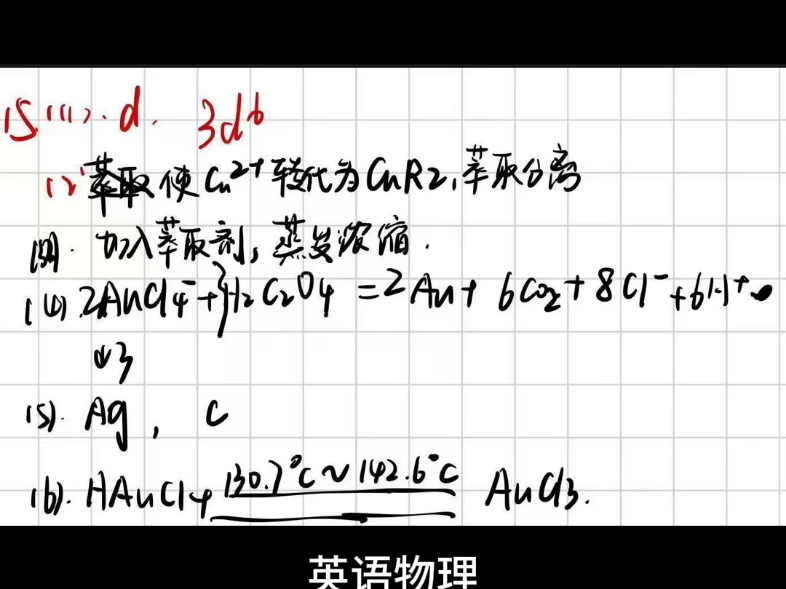 15.(1). d. 3d6
(2) 萃取使Cu²⁺转化为CuR2,萃取分离
(3). 加入萃取剂,蒸发浓缩.
(4) 2AuCl4⁻+3H2C2O4=2Au+6CO2+8Cl⁻+6H⁺
(5). Ag, C
(6). HAuCl4 130.7°C~142.6°C AuCl3.
英语物理